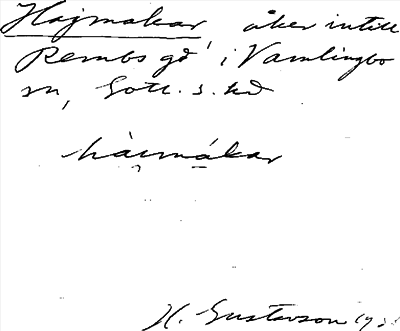 Hajmakar, åker intill
Rembs gd i Vamlingbo
sn, Gotl. s. hd
H. Gustavson